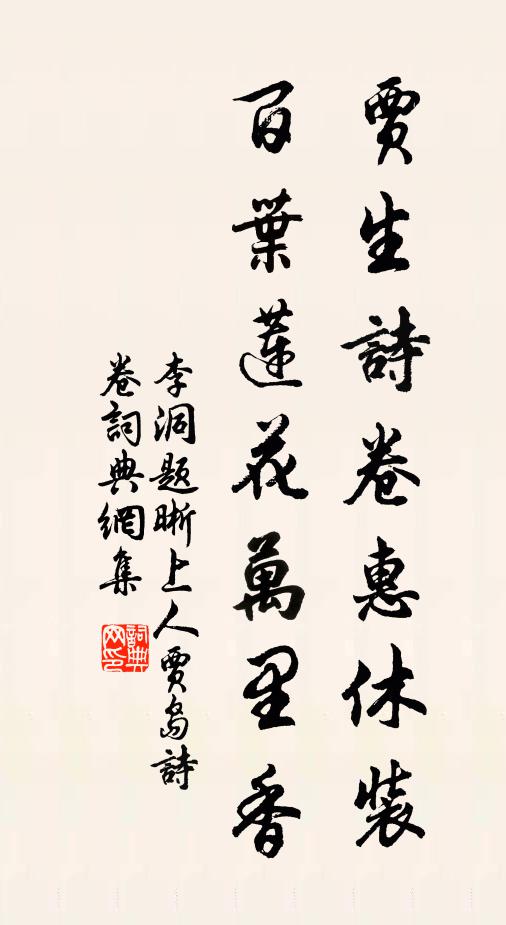 賈生詩卷惠休裝
百葉蓮花萬里香
李洞題晰上人賈島詩
卷詞典網集
詞典
网印